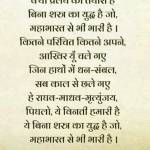 क्या प्रलय का तैयारी है
बिना शस्त्र का युद्ध है जो,
महाभारत से भी भारी है ।
कितने परिचित कितने अपने,
आखिर यूँ चले गए
जिन हाथों में धन-संबल,
सब काल से छले गए
हे राघव-माधव-मृत्युंजय,
पिघलो, ये विनती हमारी है
ये बिना शस्त्र का युद्ध है जो,
महाभारत से भी भारी है ।